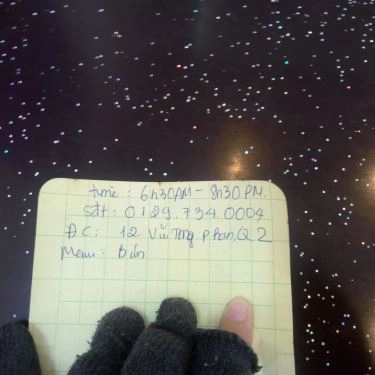 time : 6h30AM - 8h30 PM.
Sđt : 0129.734.0004
ĐC : 12 Vũ Tông Phan, Q2
Menu : Bún